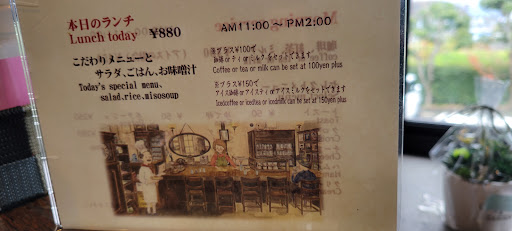 本日のランチ
Lunch today ¥880
AM11:00 ~ PM2:00
こだわりメニューと
サラダ、ごはん、お味噌汁
Today's special menu,
salad.rice.misosoup
※プラス¥100で
珈琲 or ティ or ミルクをセットできます
Coffee or tea or milk can be set at 100yen plus
※プラス¥150で
アイス珈琲 or アイスティ or アイスミルクをセットできます
Icedcoffee or icedtea or icedmilk can be set at 150yen plus